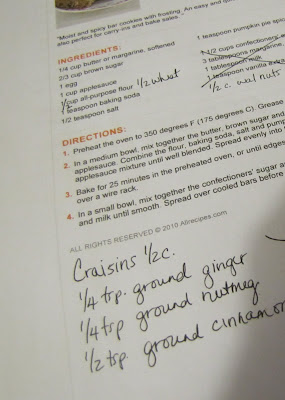 "Moist and spicy bar cookies with frosting. An easy and
also perfect for carry-ins and bake sales."
INGREDIENTS:
1/4 cup butter or margarine, softened
2/3 cup brown sugar
1 egg
1 cup applesauce
1 cup all-purpose flour 1/2 wheat
1 teaspoon baking soda
1/2 teaspoon salt
1 teaspoon pumpkin pie
1 1/2 cups
3 tablespoons margarine
1 tablespoon milk
1 teaspoon vanilla
1/2 c. walnuts
DIRECTIONS:
1. Preheat the oven to 350 degrees F (175 degrees C). Grease
2. In a medium bowl, mix together the butter, brown sugar and
applesauce. Combine the flour, baking soda, salt and pump
applesauce mixture until well blended. Spread evenly into
3. Bake for 25 minutes in the preheated oven, or until edges
over a wire rack.
4. In a small bowl, mix together the confectioners' sugar a
and milk until smooth. Spread over cooled bars before
ALL RIGHTS RESERVED © 2010 Allrecipes.com
Craisins 1/2 c.
1/4 tsp. ground ginger
1/4 tsp ground nutmeg
1/2 tsp. ground cinnamon